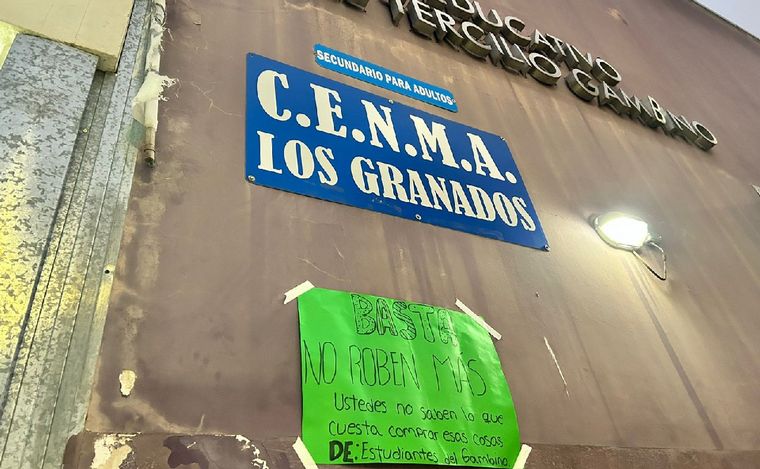 EDUCATIVO
TERCILIO GAMBINO
SECUNDARIO PARA ADULTOS
C.E.N.M.A.
LOS GRANADOS
BASTA
NO ROBEN MAS
Ustedes no saben lo que
cuesta comprar esas cosas
DE: Estudiantes del Gambino